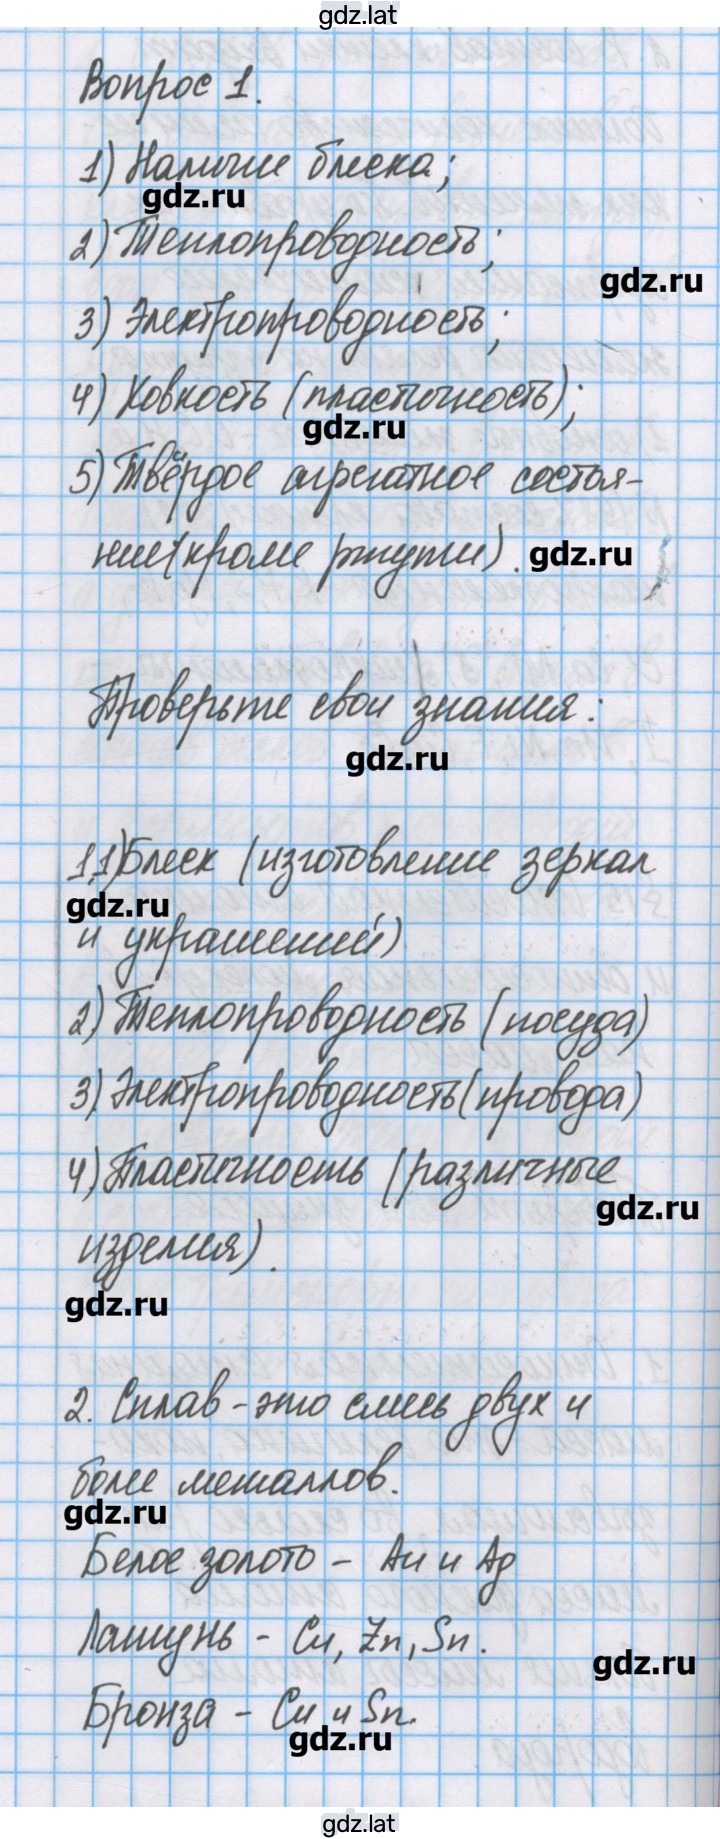 gdz.lat
Вопрос 1.
1) Наличие блеска;
gdz.ru
2) Теплопроводность;
gdz.ru
3) Электропроводность;
4) Ковкость (пластичность);
gdz.ru
5) Твёрдое агрегатное состоя-
ние (кроме ртути).
gdz.ru
Проверьте свои знания:
gdz.ru
1.1) Блеск (изготовление зеркал
gdz.ru
и украшений)
2) Теплопроводность (посуда)
3) Электропроводность (провода)
4) Пластичность (различные
gdz.ru
изделия).
gdz.ru
2. Сплав - это смесь двух и
более металлов.
gdz.ru
Белое золото - Au и Ag
Латунь - Cu, Zn, Sn.
gdz.ru
Бронза - Cu и Sn.
gdz.ru
gdz.lat